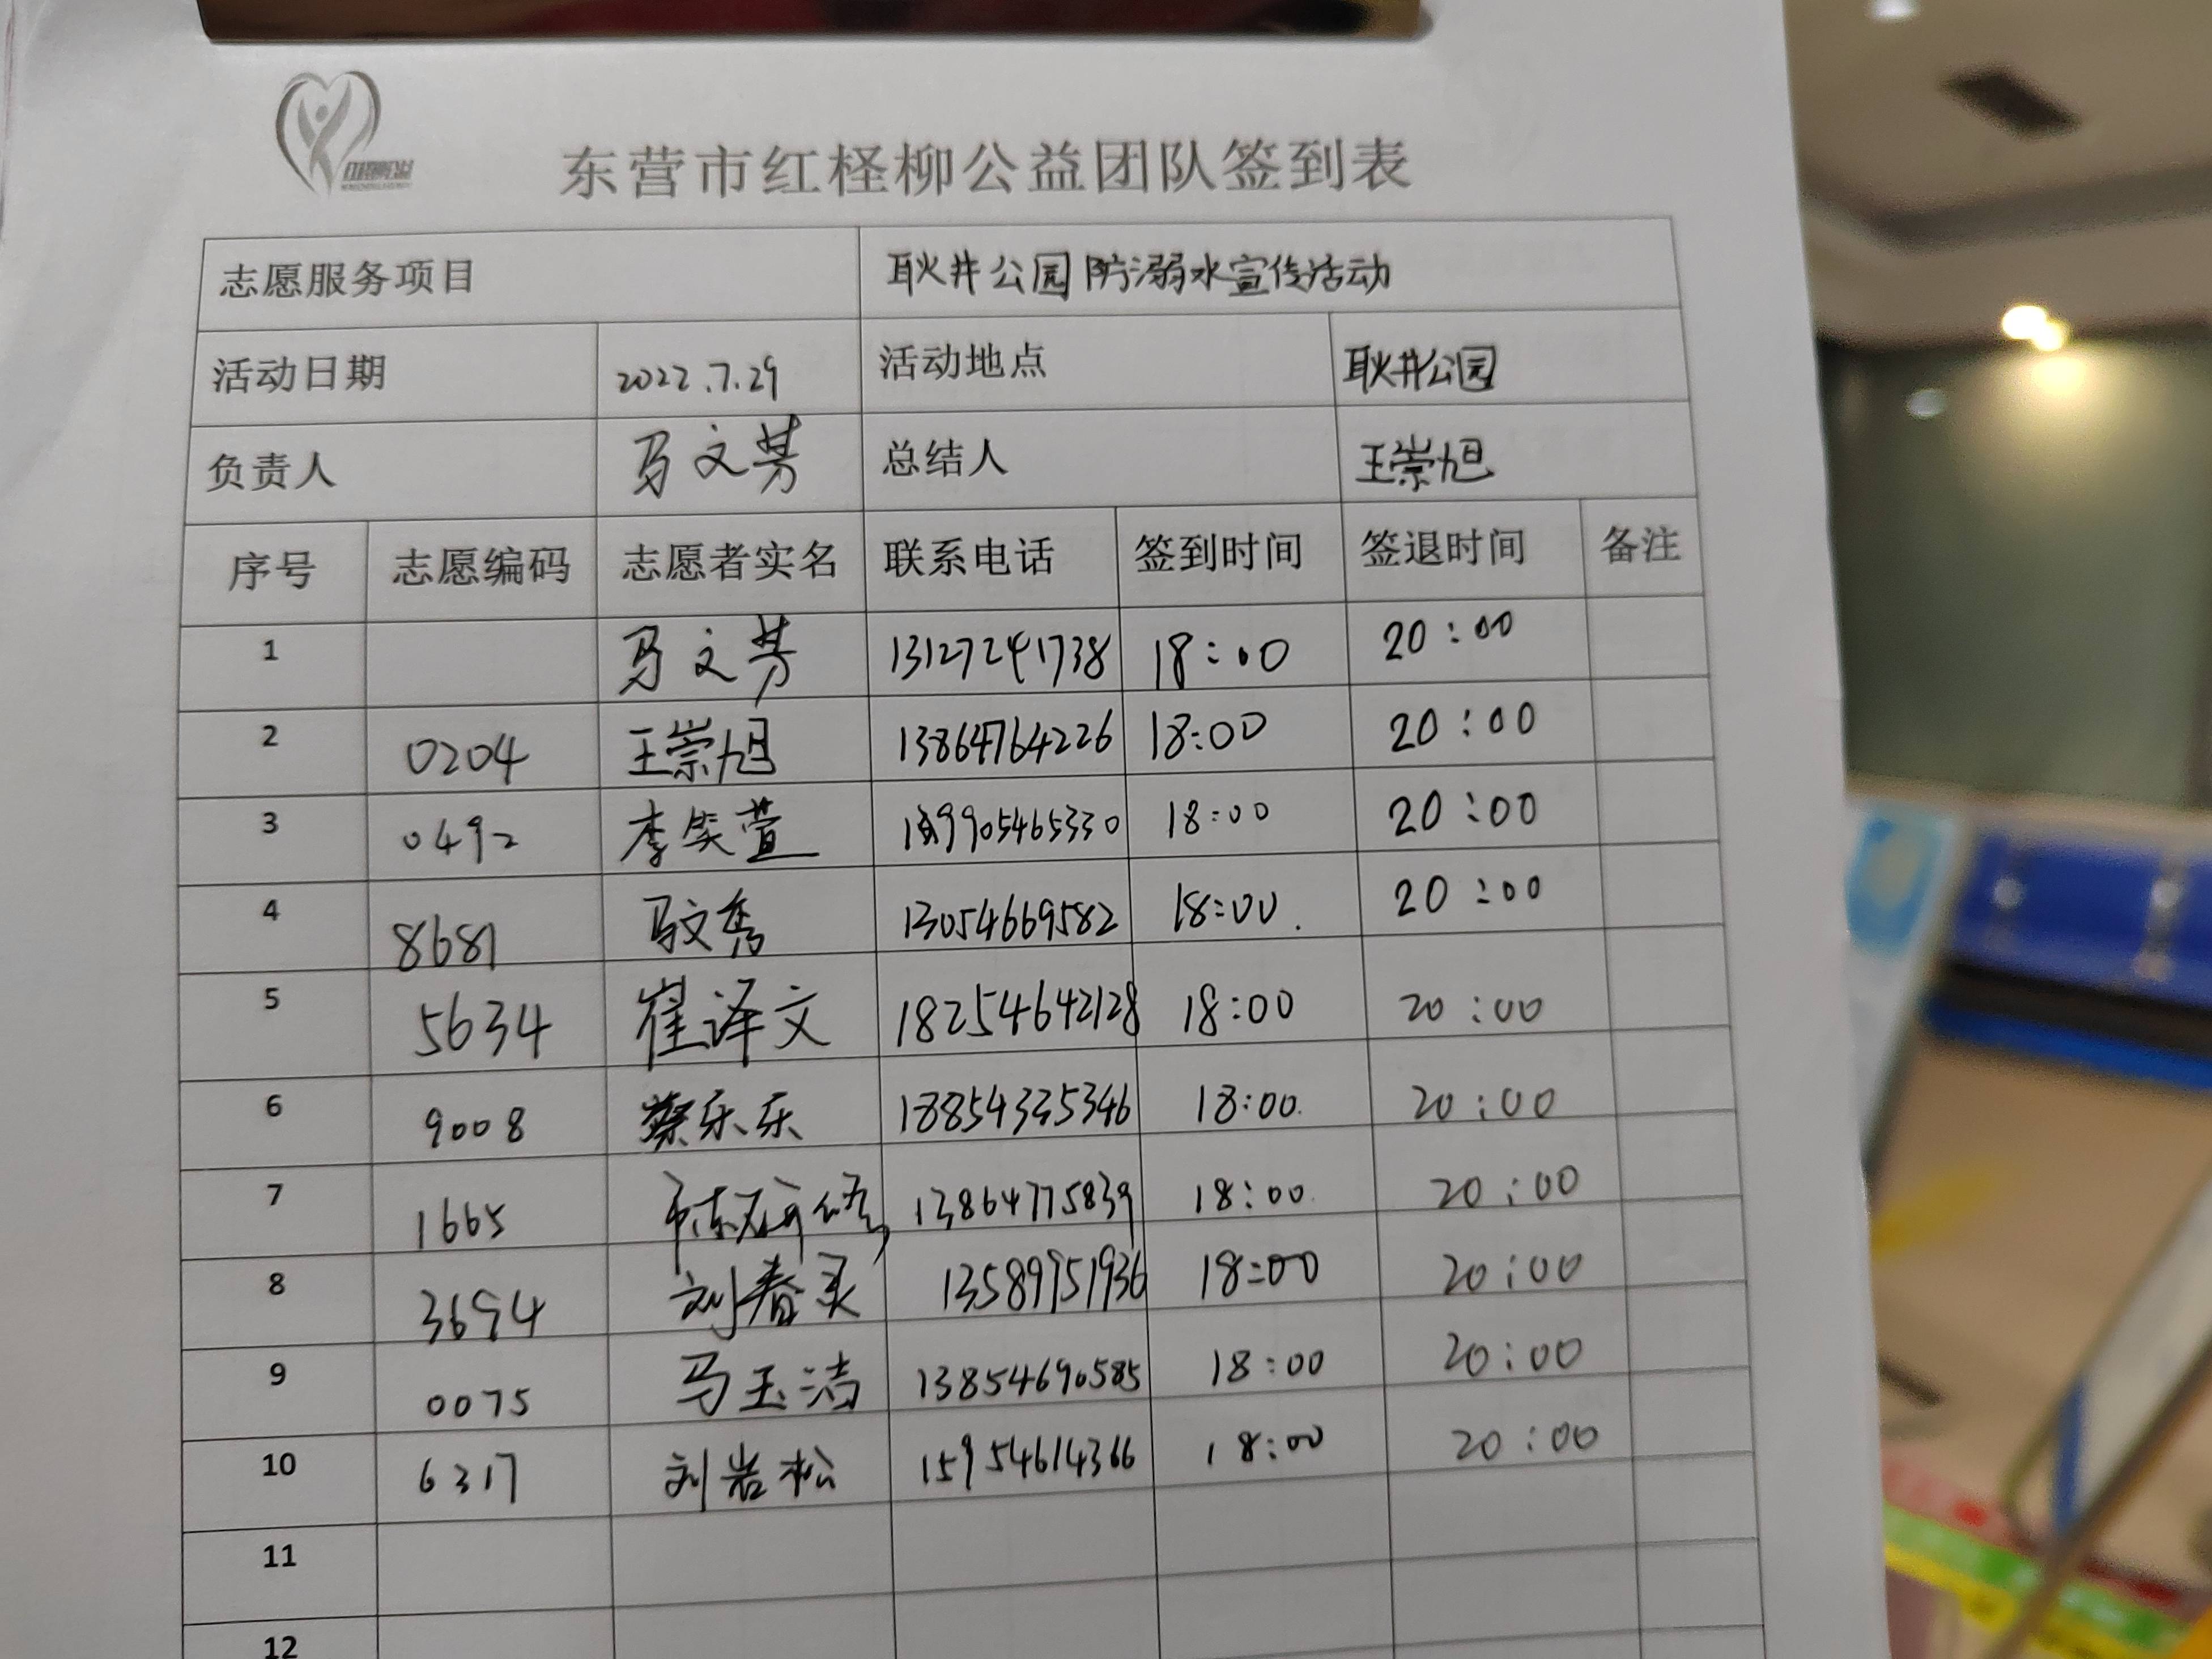 东营市红柽柳公益团队签到表
志愿服务项目 耿井公园防溺水宣传活动
活动日期 2022.7.29 活动地点 耿井公园
负责人 马文芳 总结人 王崇旭
序号 志愿编码 志愿者实名 联系电话 签到时间 签退时间 备注
1 马文芳 13127241738 18:00 20:00
2 0204 王崇旭 13864764226 18:00 20:00
3 0492 李笑萱 18:00 20:00
4 8681 马文秀 13054669582 18:00. 20:00
5 5634 崔译文 18254642128 18:00 20:00
6 9008 蔡乐乐 18854335346 18:00. 20:00
7 1665 13864775839 18:00. 20:00
8 3694 刘春灵 13589951936 18:00 20:00
9 0075 马玉洁 13854690585 18:00 20:00
10 6317 刘岩松 15954614366 18:00 20:00
11
12